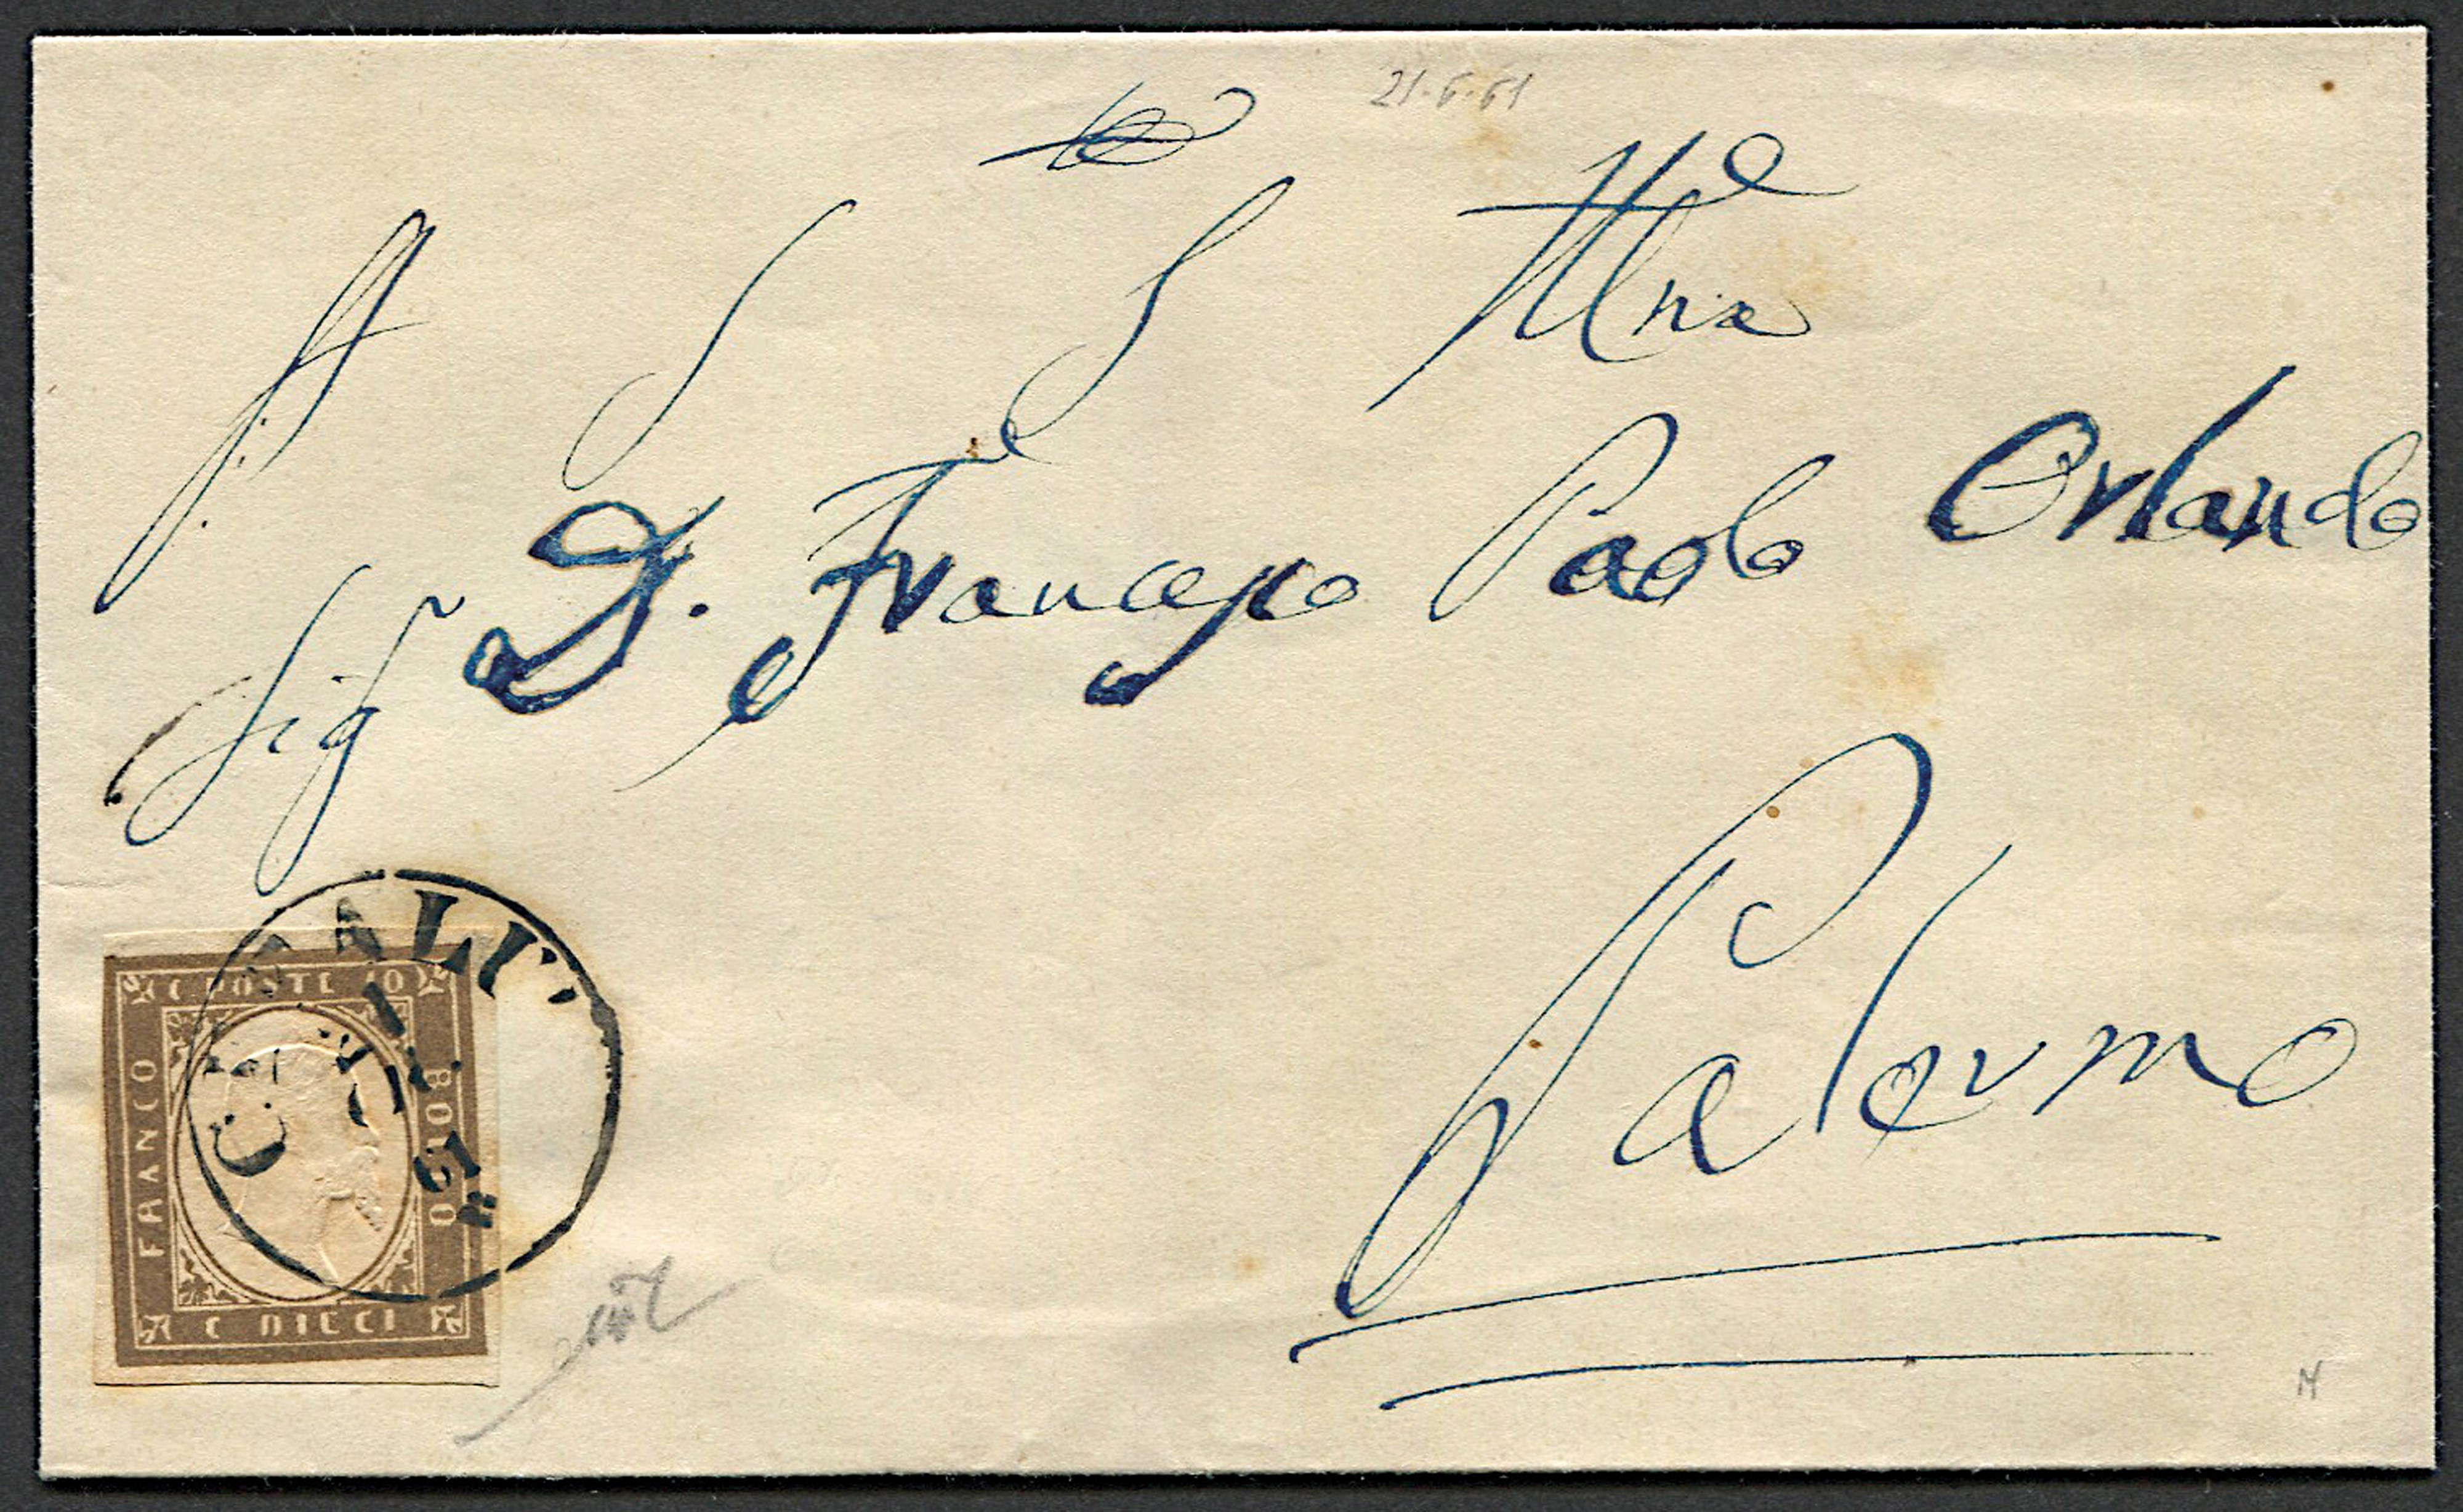 21.6.61
A S S Illma
Sig.r D. Francesco Paolo Orlando
Palermo
C POSTE 10
FRANCO
BOLLO
C DIECI
M